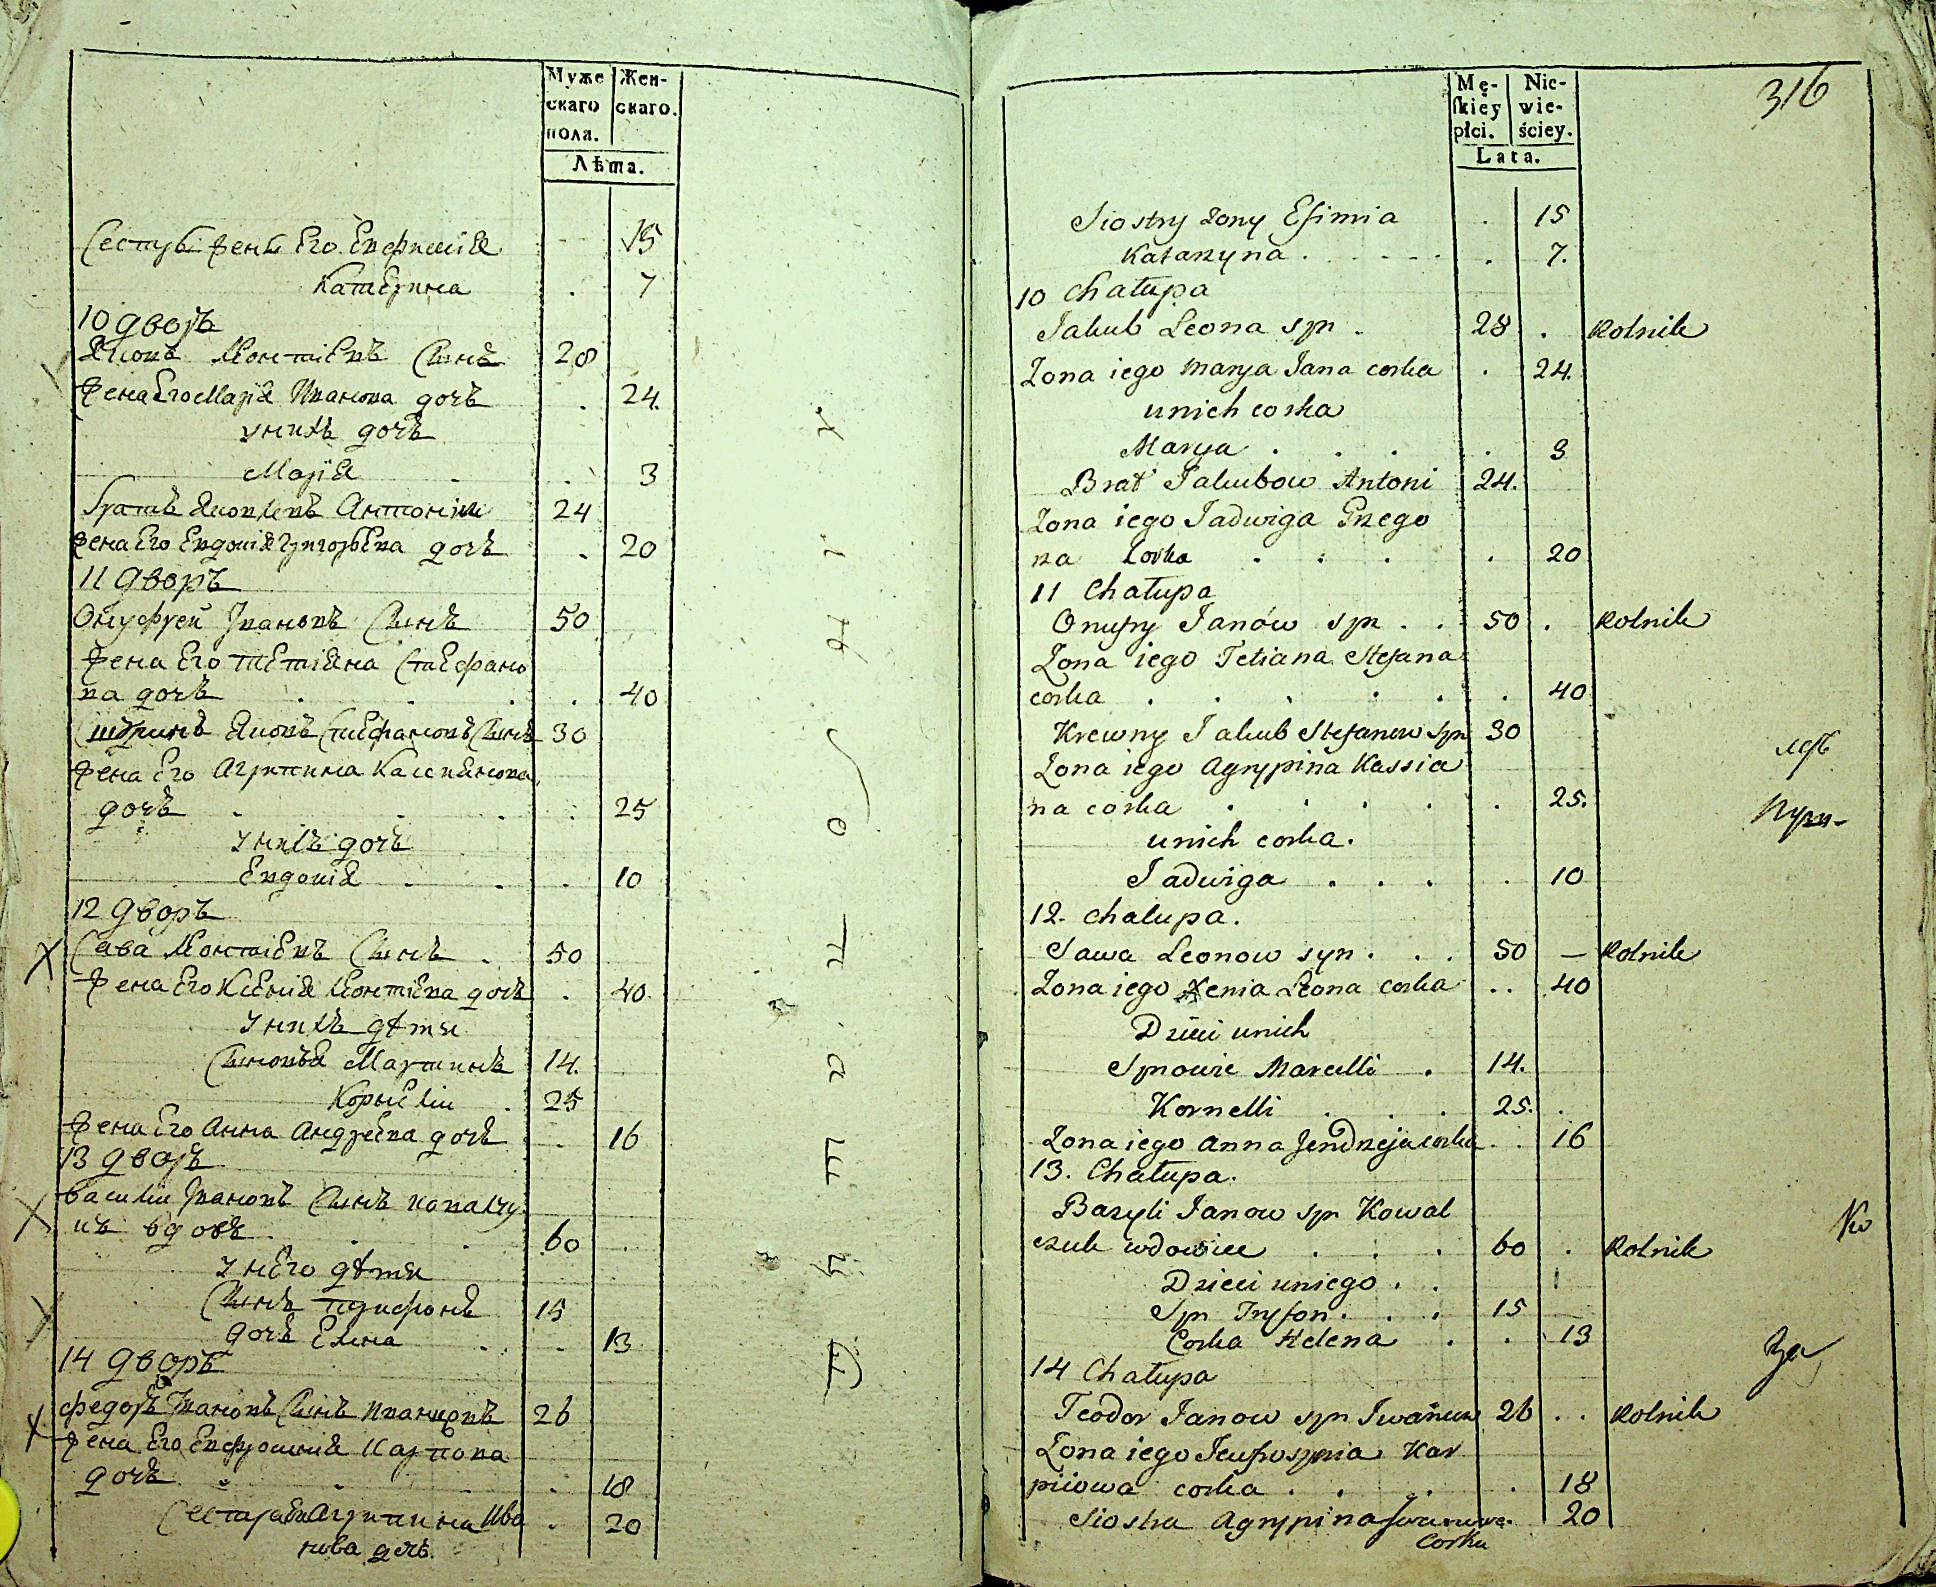 Муже
скаго
пола.
Жен-
скаго.
Лѣта.
Сестры жены Его Евфимия 15
Катерина . 7
10 дворъ
Яковъ Леонтіевъ Сынъ 28
жена Его Марія Иванова дочь . 24.
у нихъ дочь
Марія . 3
братъ Яковлевъ Антоній 24
жена Его Евдокія Григорьева дочь . 20
11 дворъ
Онуфрей Ивановъ Сынъ 50
жена Его Тетіяна Стефано
ва дочь . . . . 40
Шуринъ Яковъ Стефановъ Сынъ 30
жена Его Агрипина Касиянова
дочь . . . . 25
у нихъ дочь
Евдокія . . . 10
12 дворъ
Сава Леонтіевъ Сынъ . 50
жена Его Ксенія Леонтіева дочь . 40.
у нихъ дѣти
Сыновья Мартинъ 14.
Корнилій . 25
жена Его Анна Андреева дочь . 16
13 дворъ
Василий Ивановъ Сынъ Ковальчу
къ вдовъ . . . 60 .
у него дѣти
Сынъ Трифонъ 15
дочь Елена . . 13
14 дворъ
Федоръ Ивановъ Сынъ 26
жена Его Евфросинія Карпова
дочь . . . . 18
Сестра Агрипина Ива . 20
нова дочь.
316
Mę-
skiey
płci.
Nie-
wie-
ściey.
Lata.
Siostry żony Efimia . 15
Katarzyna . . . . . . 7.
10 Chałupa
Jakub Leona syn . 28 . Rolnik
Zona iego Marya Jana corka . 24.
unich corka
Marya . . . . 3
Brat Jakubow Antoni 24.
Zona iego Jadwiga Grzego
rza Corka . . . . 20
11 Chałupa
Onufry Janów syn . . 50 . Rolnik
Zona iego Tetiana Stefana
corka . . . . . . 40
Krewny Jakub Stefanow Syn 30
Zona iego Agrypina Kassia
na corka . . . . . . 25.
unich corka.
Jadwiga . . . . 10
12. Chalupa.
Sawa Leonow syn . . . 50 — Rolnik
Zona iego Xenia Leona corka . . 40
Dzieci unich
Synowie Marcelli . 14.
Kornelli . . . 25. .
Zona iego Anna Jendrzeja corka . . 16
13. Chałupa.
Bazyli Janow syn Kowal
czuk wdowiec . . . 60 . Rolnik
Dzieci uniego . .
Syn Tryfon . . . 15
Corka Helena . . 13
14 Chałupa
Teodor Janow syn Iwańczuk 26 . . Rolnik
Zona iego Jeufroszynia Kar
piiowa corka . . . . 18
Siostra Agrypina Iwanowa. 20
Corka